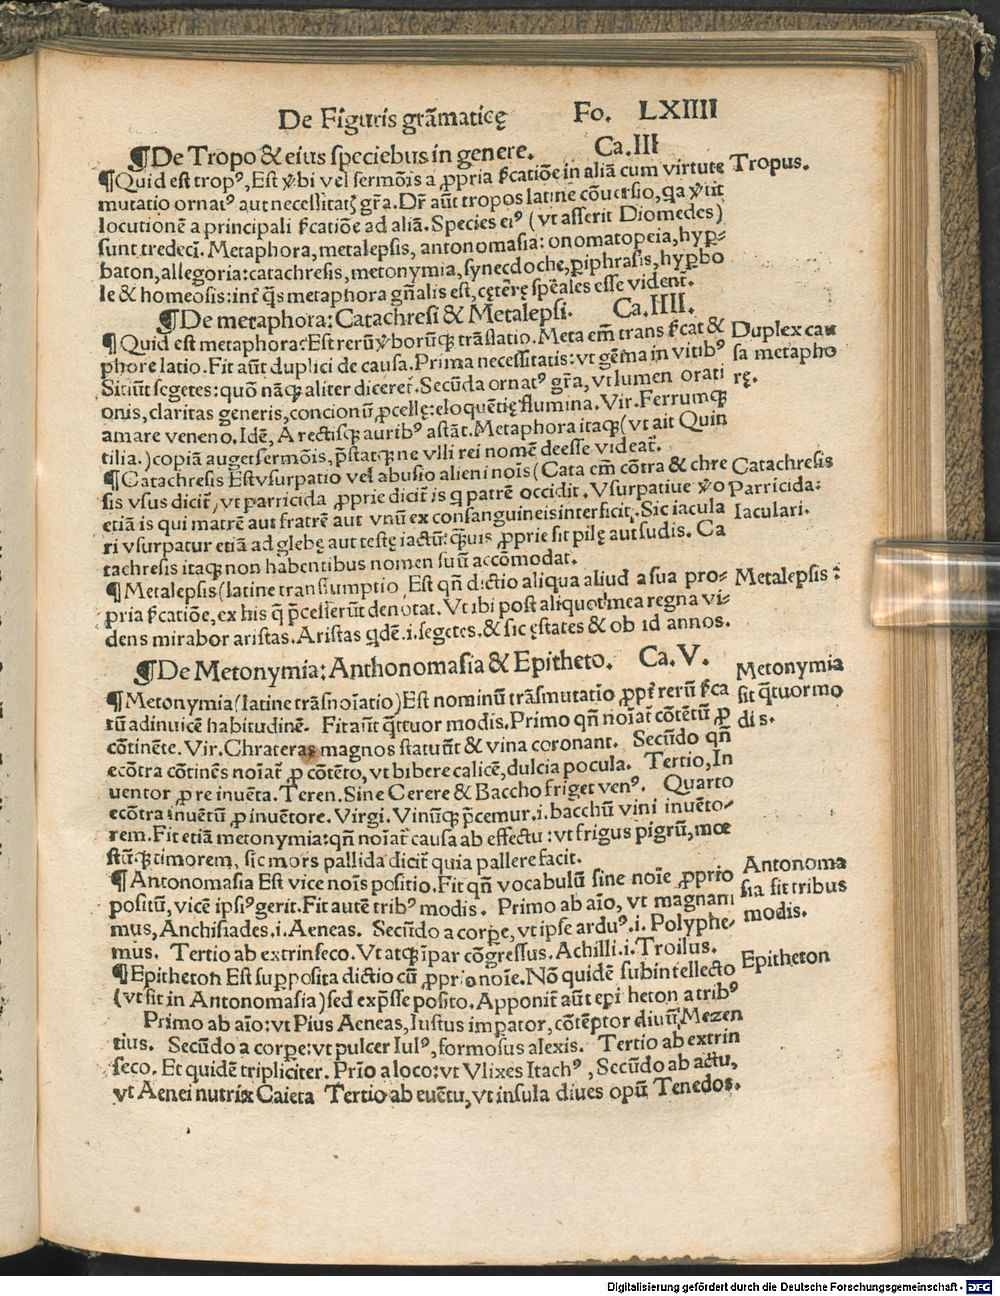 De Figuris grãmaticę Fo. LXIIII
¶De Tropo & eius speciebus in genere. Ca.III
¶Quid est tropꝰ, Est v̾bi vel sermõis a ꝓpria s̾catiõe in aliã cum virtute Tropus.
mutatio ornatꝰ aut necessitatꝭ gr̃a. Dr̃ aũt tropos latine cõuersio, qa v̾tit
locutionẽ a principali s̾catiõe ad aliã. Species eiꝰ (vt asserit Diomedes)
sunt tredeci. Metaphora, metalepsis, antonomasia: onomatopeia, hyꝑ⸗
baton, allegoria: catachresis, metonymia, synecdoche, ꝑiphrasis, hyꝑbo
le & homeosis: inf q̃s metaphora gñalis est, cęterę spẽales esse videnť.
¶De metaphora: Catachresi & Metalepsi. Ca.IIII.
¶Quid est metaphora? Est rerũ v̾borũqꝫ trãslatio. Meta em̃ trans s̾cat & Duplex cau
phore latio. Fit aũt duplici de causa. Prima necessitatis: vt gẽma in vitibꝰ sa metapho
Sitiũt segetes: quõ nãqꝫ aliter dicereť. Secũda ornatꝰ gr̃a, vt lumen orati rę.
onis, claritas generis, concionũ ꝓcellę: eloquẽtię flumina. Vir. Ferrumqꝫ
amare veneno. Idẽ, Arectisqꝫ auribꝰ astãt. Metaphora itaqꝫ (vt ait Quin
tilia.) copiã auget sermõis, p̃statqꝫ ne vlli rei nomẽ deesse videať.
¶Catachresis Est vsurpatio vel abusio alieni nois (Cata em̃ cõtra & chre Catachresis
sis vsus diciť, vt parricida ꝓprie diciť is q patrẽ occidit. Vsurpatiue v̾o Parricida:
etiã is qui matrẽ aut fratrẽ aut vnũ ex consanguineis interficit. Sic iacula Iaculari.
ri vsurpatur etiã ad glebę aut testę iactũ: q̃uis ꝓprie sit pilę aut sudis. Ca
tachresis itaqꝫ non habentibus nomen suũ accõmodat.
¶Metalepsis (latine transsumptio Est qñ dictio aliqua aliud a sua pro⸗ Metalepsis:
pria s̾catiõe, ex his q̃ p̃cesserũt denotat. Vt ibi post aliquot mea regna vi⸗
dens mirabor aristas. Aristas qdẽ .i. segetes. & sic ęstates & ob id annos.
¶De Metonymia: Anthonomasia & Epitheto. Ca.V.
Metonymia
¶Metonymia (latine trãsnoiatio) Est nominũ trãsmutatio ꝓpť rerũ s̾ca sit q̃tuor mo
tũ adinuicẽ habitudinẽ. Fit aũt q̃ttuor modis. Primo qñ noiať cõtẽtũ ꝓ dis.
cõtinẽte. Vir. Chrateras magnos statuũt & vina coronant. Secũdo qñ
ecõtra cõtinẽs noiať ꝓ cõtẽto, vt bibere calicẽ, dulcia pocula. Tertio, In
uentor ꝓ re inuẽta. Teren. Sine Cerere & Baccho friget venꝰ. Quarto
ecõtra inuẽtũ ꝓ inuẽtore. Virgi. Vinũqꝫ p̃cemur .i. bacchũ vini inuẽto⸗
rem. Fit etiã metonymia: qñ noiať causa ab effectu: vt frigus pigrũ, mœ
stũqꝫ timorem, sic mors pallida diciť quia pallere facit.
¶Antonomasia Est vice nois positio. Fit qñ vocabulũ sine noie ꝓprio Antonoma
positũ, vicẽ ipsiꝰ gerit. Fit autẽ tribꝰ modis. Primo ab aĩo, vt magnani sia sit tribus
mus, Anchisiades .i. Aeneas. Secũdo a corꝑe, vt ipse arduꝰ .i. Polyphe⸗ modis.
mus. Tertio ab extrinseco. Vt atqꝫ ĩpar cõgressus. Achilli .i. Troilus.
¶Epitheton Est supposita dictio cũ ꝓprio noie. Nõ quidẽ subintellecto Epitheton
(vt sit in Antonomasia) sed exp̃sse posito. Apponiť aũt epi heton a tribꝰ
Primo ab aĩo: vt Pius Aeneas, Iustus imꝑator, cõtẽptor diuũ, Mezen
tius. Secũdo a corꝑe: vt pulcer Iulꝰ, formosus alexis. Tertio ab extrin
seco. Et quidẽ tripliciter. Prio a loco: vt Vlixes Itachꝰ, Secũdo ab actu,
vt Aenei nutrix Caieta Tertio ab euẽtu, vt insula diues opũ Tenedos.
Digitalisierung gefördert durch die Deutsche Forschungsgemeinschaft - DFG